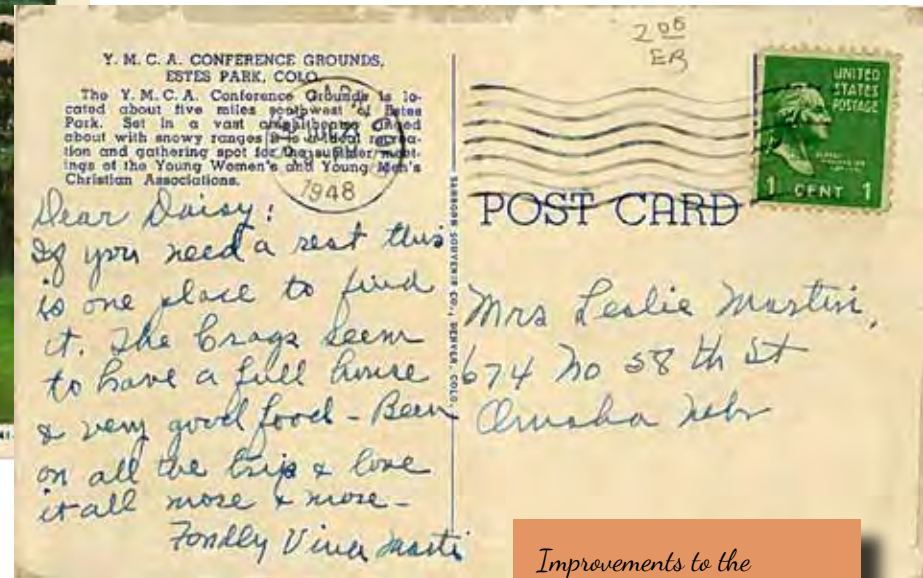 2 00
ER
Y. M. C. A. CONFERENCE GROUNDS,
ESTES PARK, COLO.
The Y. M. C. A. Conference Grounds is lo-
cated about five miles southwest of Estes
Park. Set in a vast amphitheatre ringed
about with snowy ranges it is a ideal recrea-
tion and gathering spot for the summer meet-
ings of the Young Women's and Young Men's
Christian Associations.
1948
UNITED
STATES
POSTAGE
1 CENT 1
POST CARD
SANBORN SOUVENIR CO., DENVER, COLO.
Dear Daisy:
If you need a rest this
is one place to find
it. The Crags seem
to have a full house
& very good food - Been
on all the trip & love
it all more & more -
Fondly
Mrs Leslie Martin,
674 No 58 th St
Omaha Nebr
Improvements to the